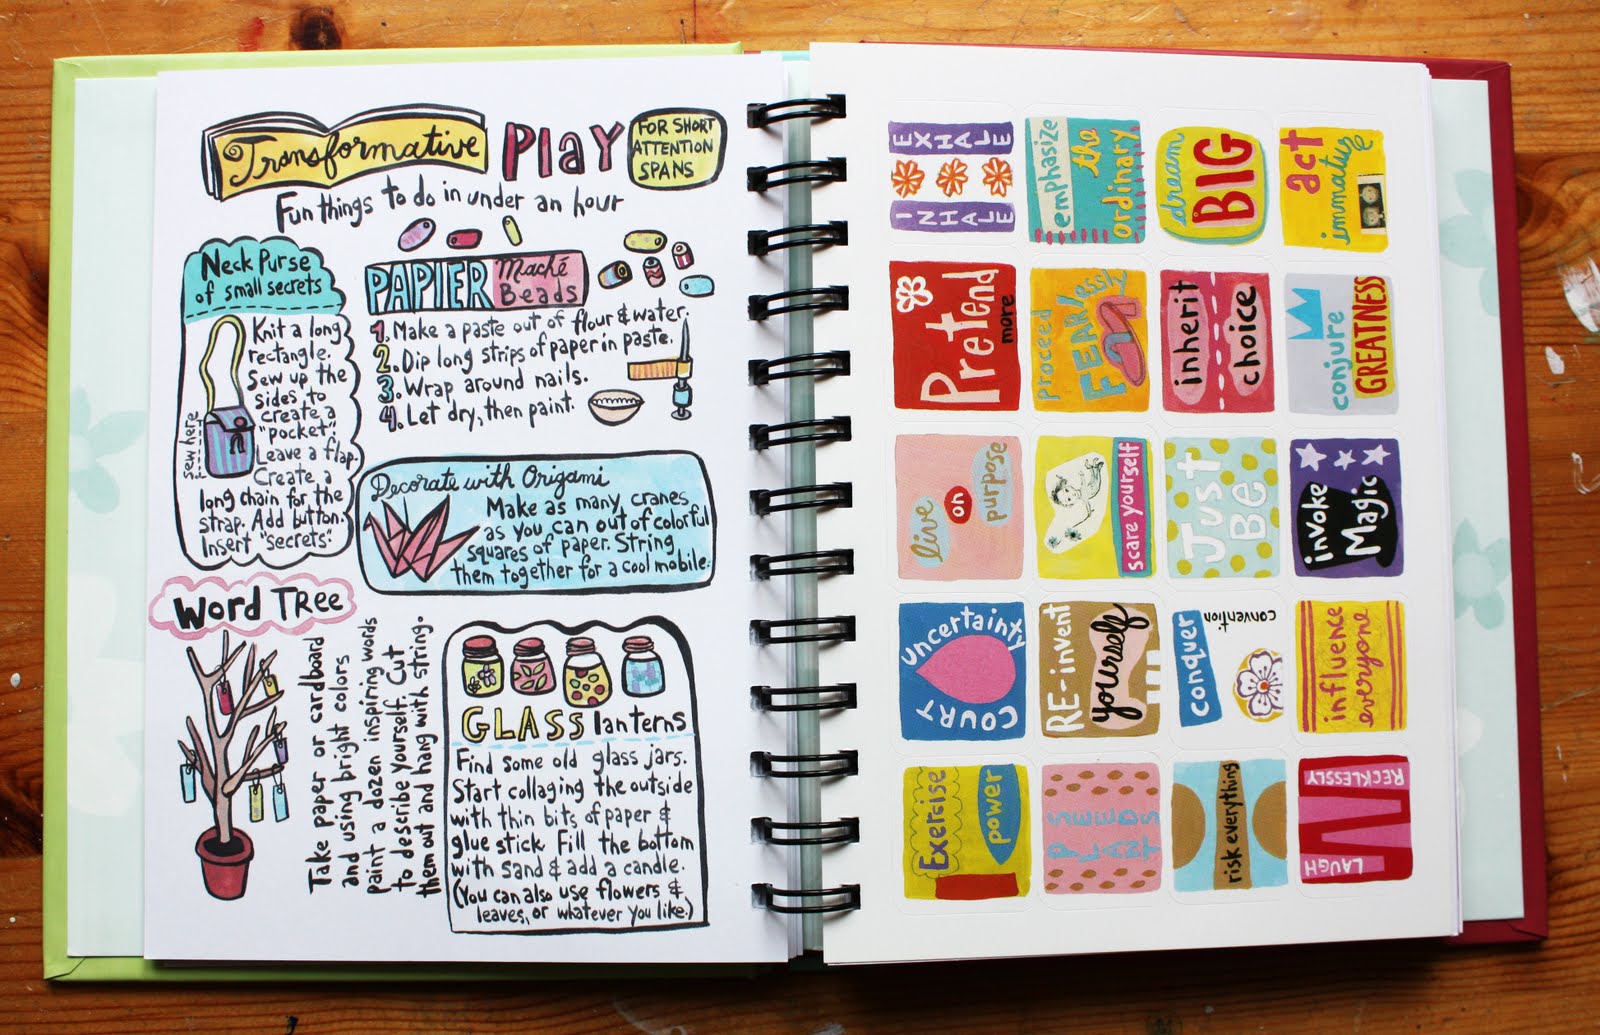 Transformative
PlAY
FOR SHORT
ATTENTION
SPANS
Fun things to do in under an hour
Neck Purse
of small secrets
Knit a long
rectangle.
Sew up the
sides to
create a
"pocket".
Leave a flap.
Create a
long chain for the
strap. Add button.
Insert "secrets".
sew here
PAPIER Maché
Beads
1. Make a paste out of flour & water.
2. Dip long strips of paper in paste.
3. Wrap around nails.
4. Let dry, then paint.
Decorate with Origami
Make as many cranes
as you can out of colorful
squares of paper. String
them together for a cool mobile.
WORD TREE
Take paper or cardboard
and using bright colors
paint a dozen inspiring words
to describe yourself. Cut
them out and hang with string.
GLASS lanterns
Find some old glass jars.
Start collaging the outside
with thin bits of paper &
glue stick. Fill the bottom
with sand & add a candle.
(You can also use flowers &
leaves, or whatever you like.)
EXHALE
INHALE
emphasize
the
ordinary
dream
BIG
act
immature
Pretend
more
proceed
FEARlessly
inherit
choice
conjure
GREATNESS
live
on
purpose
scare yourself
Just
Be
invoke
Magic
COURT
uncertainty
RE-invent
yourself
conquer
convention
influence
everyone
Exercise
power
PLANT
SEEDS
risk everything
LAUGH
RECKLESSLY